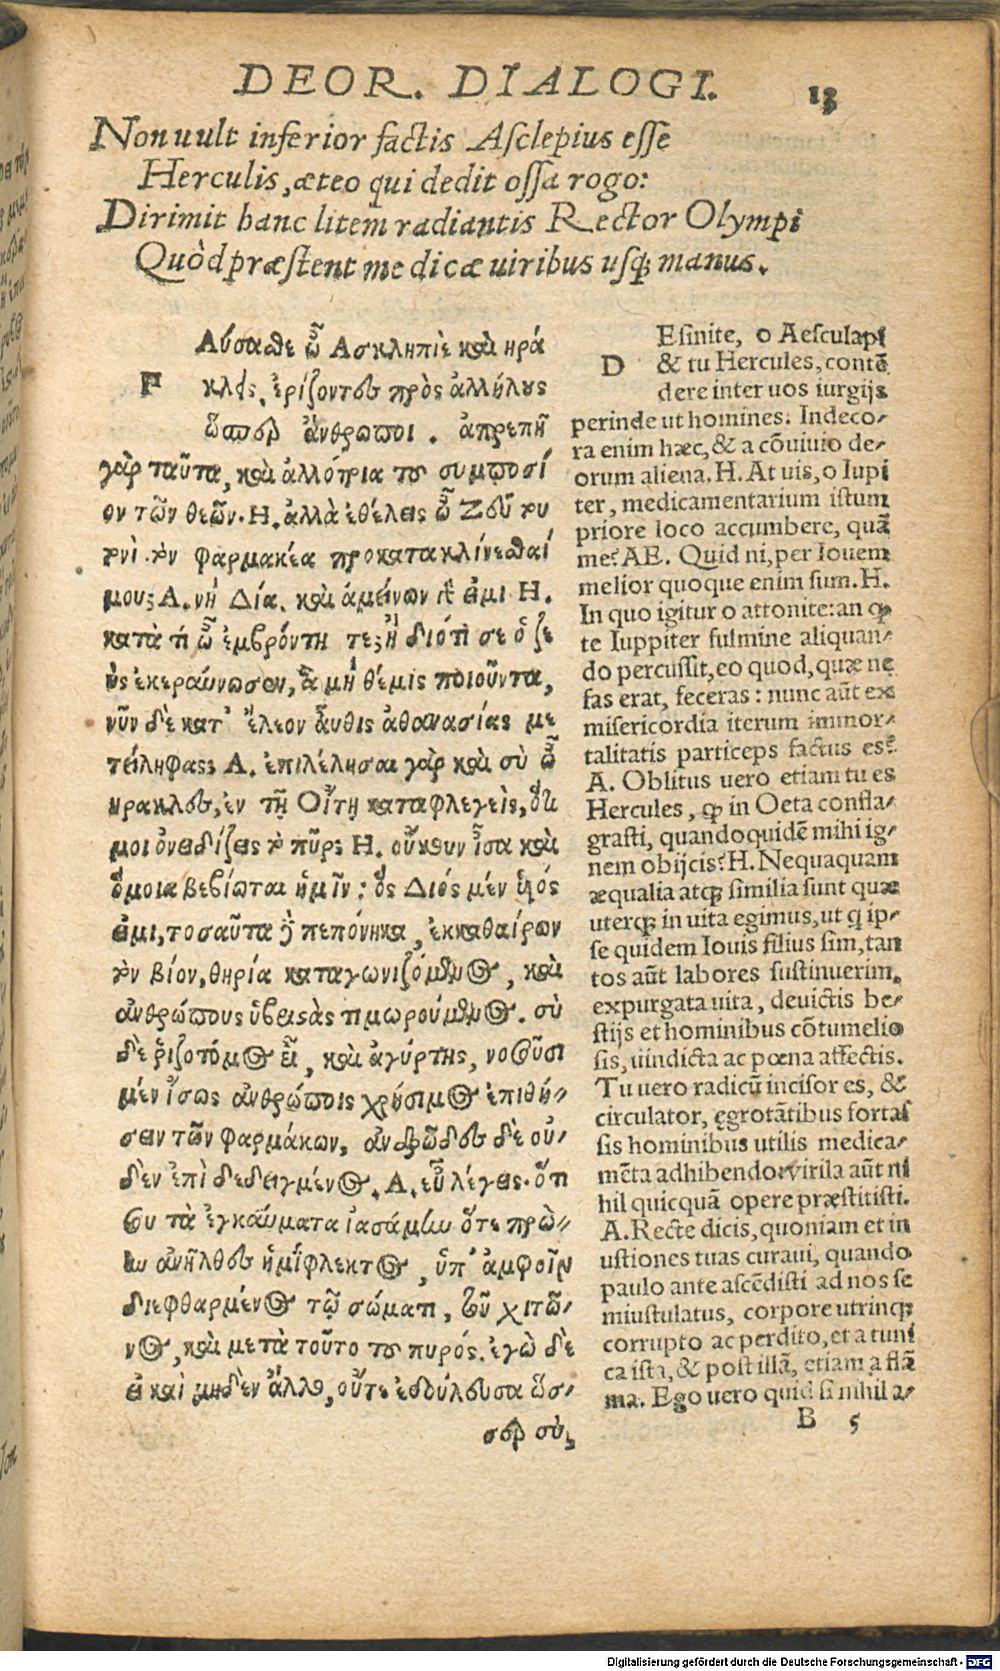 DEOR. DIALOGI. 13
Non uult inferior factis Asclepius esse
Herculis, æteo qui dedit ossa rogo:
Dirimit hanc litem radiantis Rector Olympi
Quòd præstent medicæ uiribus usq; manus.
Αύσαθε ὦ Ασκληπιὲ καὶ ηρά
Γ κλεις, ἐρίζοντες πρὸς ἀλλήλους
ὥσπερ ἄνθρωποι . ἀπρεπῆ
γὰρ ταῦτα, καὶ ἀλλότρια τοῦ συμποσί
ου τῶν θεῶν. Η. ἀλλὰ ἐθέλεις ὦ Ζεῦ του
τονὶ τὸν φαρμακέα προκατακλίνεσθαί
μου; Α. νὴ Δία. καὶ ἀμείνων γὰρ εἰμι Η.
κατὰ τί ὦ ἐμβρόντη τε; ἢ διότι σε ὁ ζε
ὺς ἐκεραύνωσεν, ἃ μὴ θέμις ποιοῦντα,
νῦν δὲ κατ' ἔλεον ἄυθις ἀθανασίας με
τείληφας; Α. ἐπιλέλησαι γὰρ καὶ σὺ ὦ
ηρακλες, ἐν τῇ Οἴτῃ καταφλεγεὶς, ὅτι
μοι ὀνειδίζεις τὸ πῦρ; Η. οὔκουν ἶσα καὶ
ὅμοια βεβίωται ἡμῖν: ὃς Διός μέν υἱός
εἰμι, τοσαῦτα δὲ πεπόνηκα, ἐκκαθαίρων
τὸν βίον, θηρία καταγωνιζόμενος, καὶ
ἀνθρώπους ὑβριστὰς τιμωρούμενος. σὺ
δὲ ῥιζοτόμος εἶ, καὶ ἀγύρτης, νοσοῦσι
μέν ἴσως ἀνθρώποις χρήσιμος ἐπιθή-
σειν τῶν φαρμάκων, ἀνδρῶδες δὲ οὐ-
δὲν ἐπιδεδειγμένος. Α. εὖ λέγεις. ὅτι
σου τὰ ἐγκαύματα ἰασάμην ὅτε πρώ-
ην ἀνῆλθες ἡμίφλεκτος, ὑπ' ἀμφοῖν
διεφθαρμένος τῷ σώματι, τοῦ χιτῶ-
νος, καὶ μετὰ τοῦτο τοῦ πυρός. ἐγὼ δὲ
εἰ καὶ μηδὲν ἄλλο, οὔτε ἐδούλευσα ὥσ-
περ σὺ,
Esinite, o Aesculapi
D & tu Hercules, contẽ
dere inter uos iurgijs
perinde ut homines. Indeco-
ra enim hæc, & a cõuiuio de-
orum aliena. H. At uis, o Iupi
ter, medicamentarium istum
priore loco accumbere, quã
me? AE. Quid ni, per Iouem
melior quoque enim sum. H.
In quo igitur o attonite: an ꝙ
te Iuppiter fulmine aliquan-
do percussit, eo quod, quæ ne
fas erat, feceras: nunc aũt ex
misericordia iterum immor-
talitatis particeps factus es?
A. Oblitus uero etiam tu es
Hercules, ꝙ in Oeta confla-
grasti, quandoquidẽ mihi ig-
nem obijcis? H. Nequaquam
æqualia atq; similia sunt quæ
uterq; in uita egimus, ut q ip-
se quidem Iouis filius sim, tan
tos aũt labores sustinuerim,
expurgata uita, deuictis be-
stijs et hominibus cõtumelio
sis, uindicta ac pœna affectis.
Tu uero radicũ incisor es, &
circulator, ęgrotãtibus fortas
sis hominibus utilis medica-
mẽta adhibendo: virila aũt ni
hil quicquã opere præstitisti.
A. Recte dicis, quoniam et in
ustiones tuas curaui, quando
paulo ante ascẽdisti ad nos se
miustulatus, corpore utrinq;
corrupto ac perdito, et a tuni
ca ista, & post illã, etiam a flã
ma. Ego uero quid si nihil a-
B 5
Digitalisierung gefördert durch die Deutsche Forschungsgemeinschaft - DFG